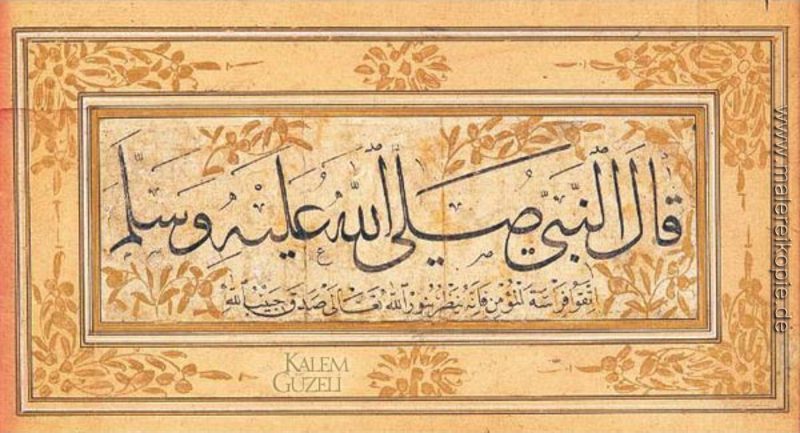 قَالَ النَّبِيُّ صَلَّى اللهُ عَلَيْهِ وَسَلَّمَ
اِتَّقُوا فَرَاسَةَ الْمُؤْمِنِ فَاِنَّهُ يَنْظُرُ بِنُورِ اللهِ تَعَالَى صَدَقَ حَبِيبُ اللهِ
KALEM
GÜZELİ
www.malereikopie.de